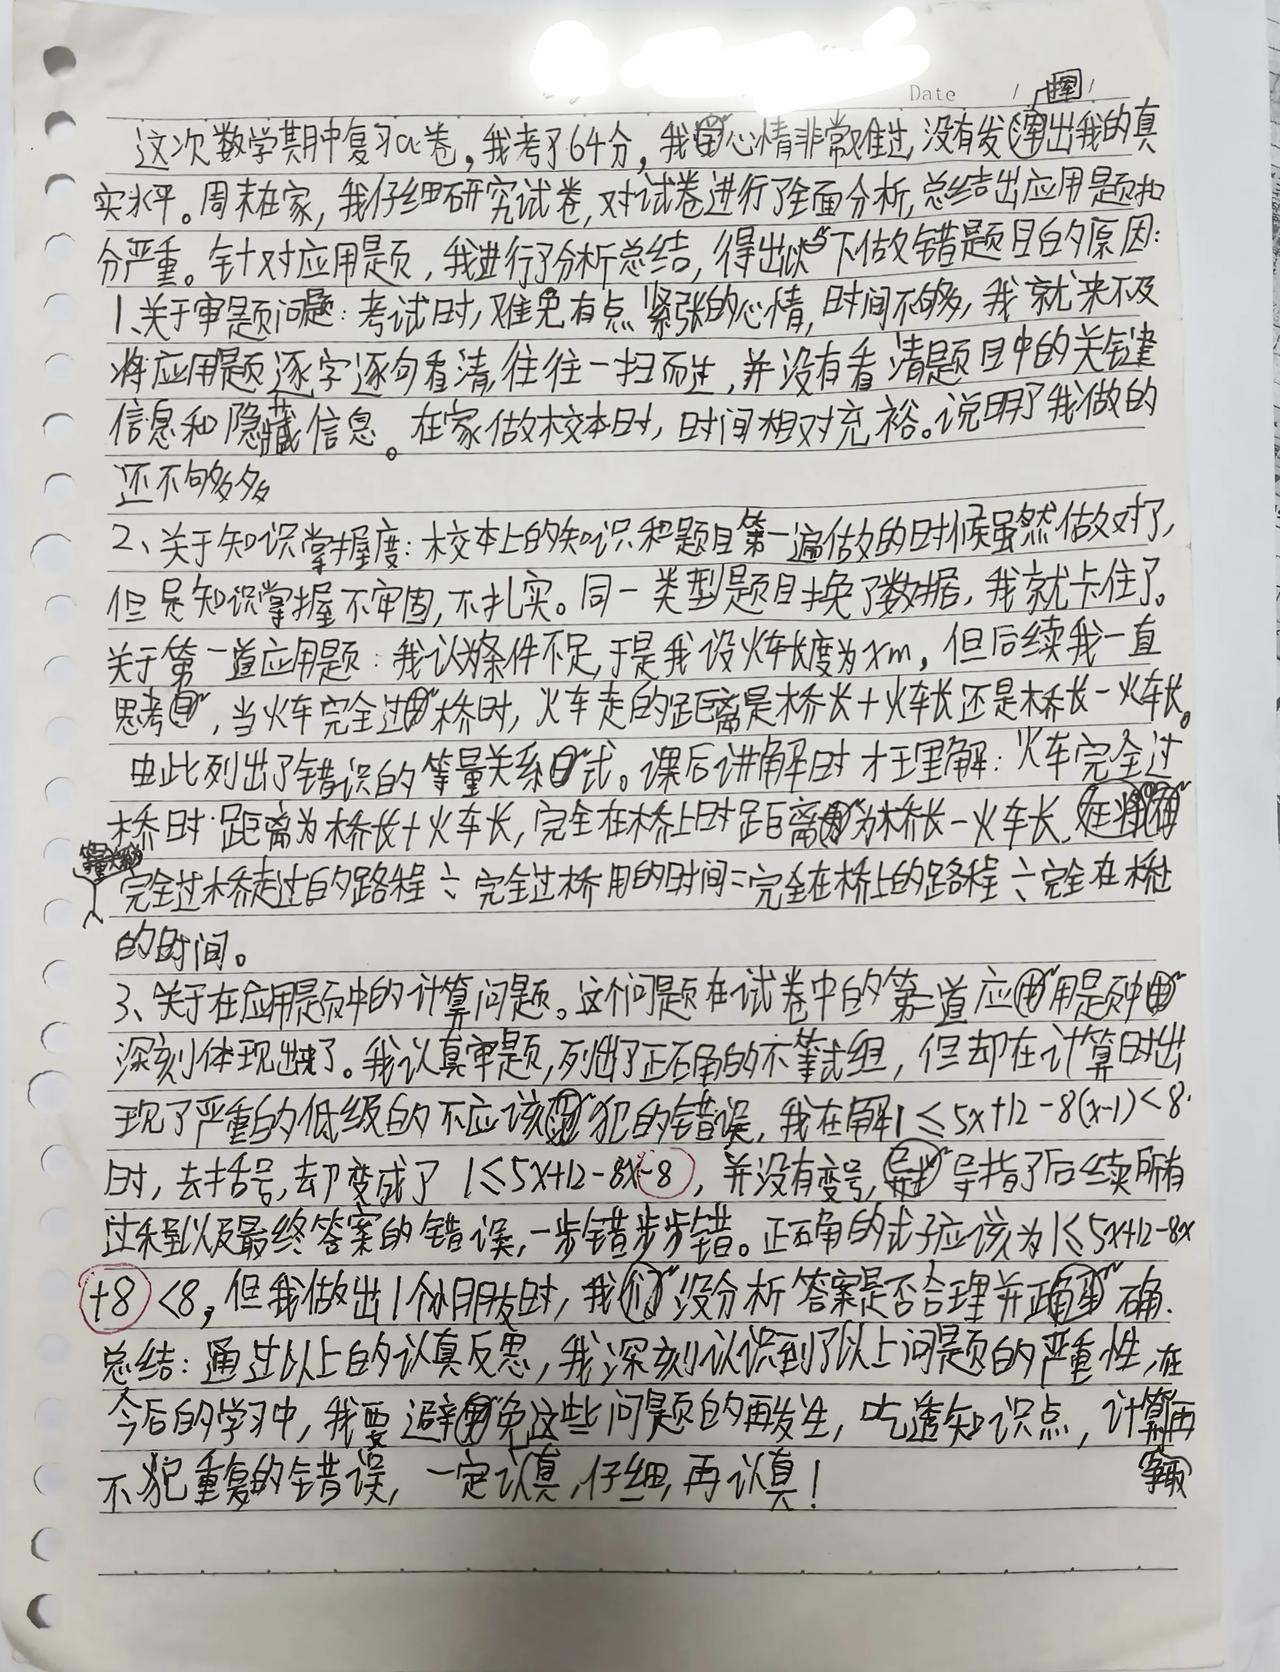 Date / /
挥
这次数学期中复习a卷，我考了64分，我心情非常难过，没有发挥出我的真
实水平。周末在家，我仔细研究试卷，对试卷进行了全面分析，总结出应用题扣
分严重。针对应用题，我进行了分析总结，得出以下做错题目的原因：
1、关于审题问题：考试时，难免有点紧张的心情，时间不够多，我就来不及
将应用题逐字逐句看清，往往一扫而过，并没有看清题目中的关键
信息和隐藏信息。在家做校本时，时间相对充裕。说明了我做的
还不够多
2、关于知识掌握度：校本上的知识和题目第一遍做的时候虽然做对了，
但是知识掌握不牢固，不扎实。同一类型题目换了数据，我就卡住了。
关于第一道应用题：我认为条件不足，于是我设火车长度为xm，但后续我一直
思考，当火车完全过桥时，火车走的距离是桥长+火车长还是桥长-火车长。
由此列出了错误的等量关系式。课后讲解时才理解：火车完全过
桥时距离为桥长+火车长，完全在桥上时距离为桥长-火车长.
等量关系
完全过桥走过的路程÷完全过桥用的时间=完全在桥上的路程÷完全在桥上
的时间。
3、关于在应用题中的计算问题。这个问题在试卷中的第二道应用题中
深刻体现出来了。我认真审题，列出了正确的不等式组，但却在计算时出
现了严重的低级的不应该犯的错误，我在解1≤5x+12-8(x-1)<8
时，去括号，却变成了1≤5x+12-8x-8，并没有变号，导指了后续所有
过程以及最终答案的错误，一步错步步错。正确的式子应该为1≤5x+12-8x
+8<8，但我做出1个小朋友时，我没分析答案是否合理并正确.
总结：通过以上的认真反思，我深刻认识到了以上问题的严重性，在
今后的学习中，我要避免这些问题的再发生，吃透知识点，计算再
不犯重复的错误，一定认真，仔细，再认真！
争取